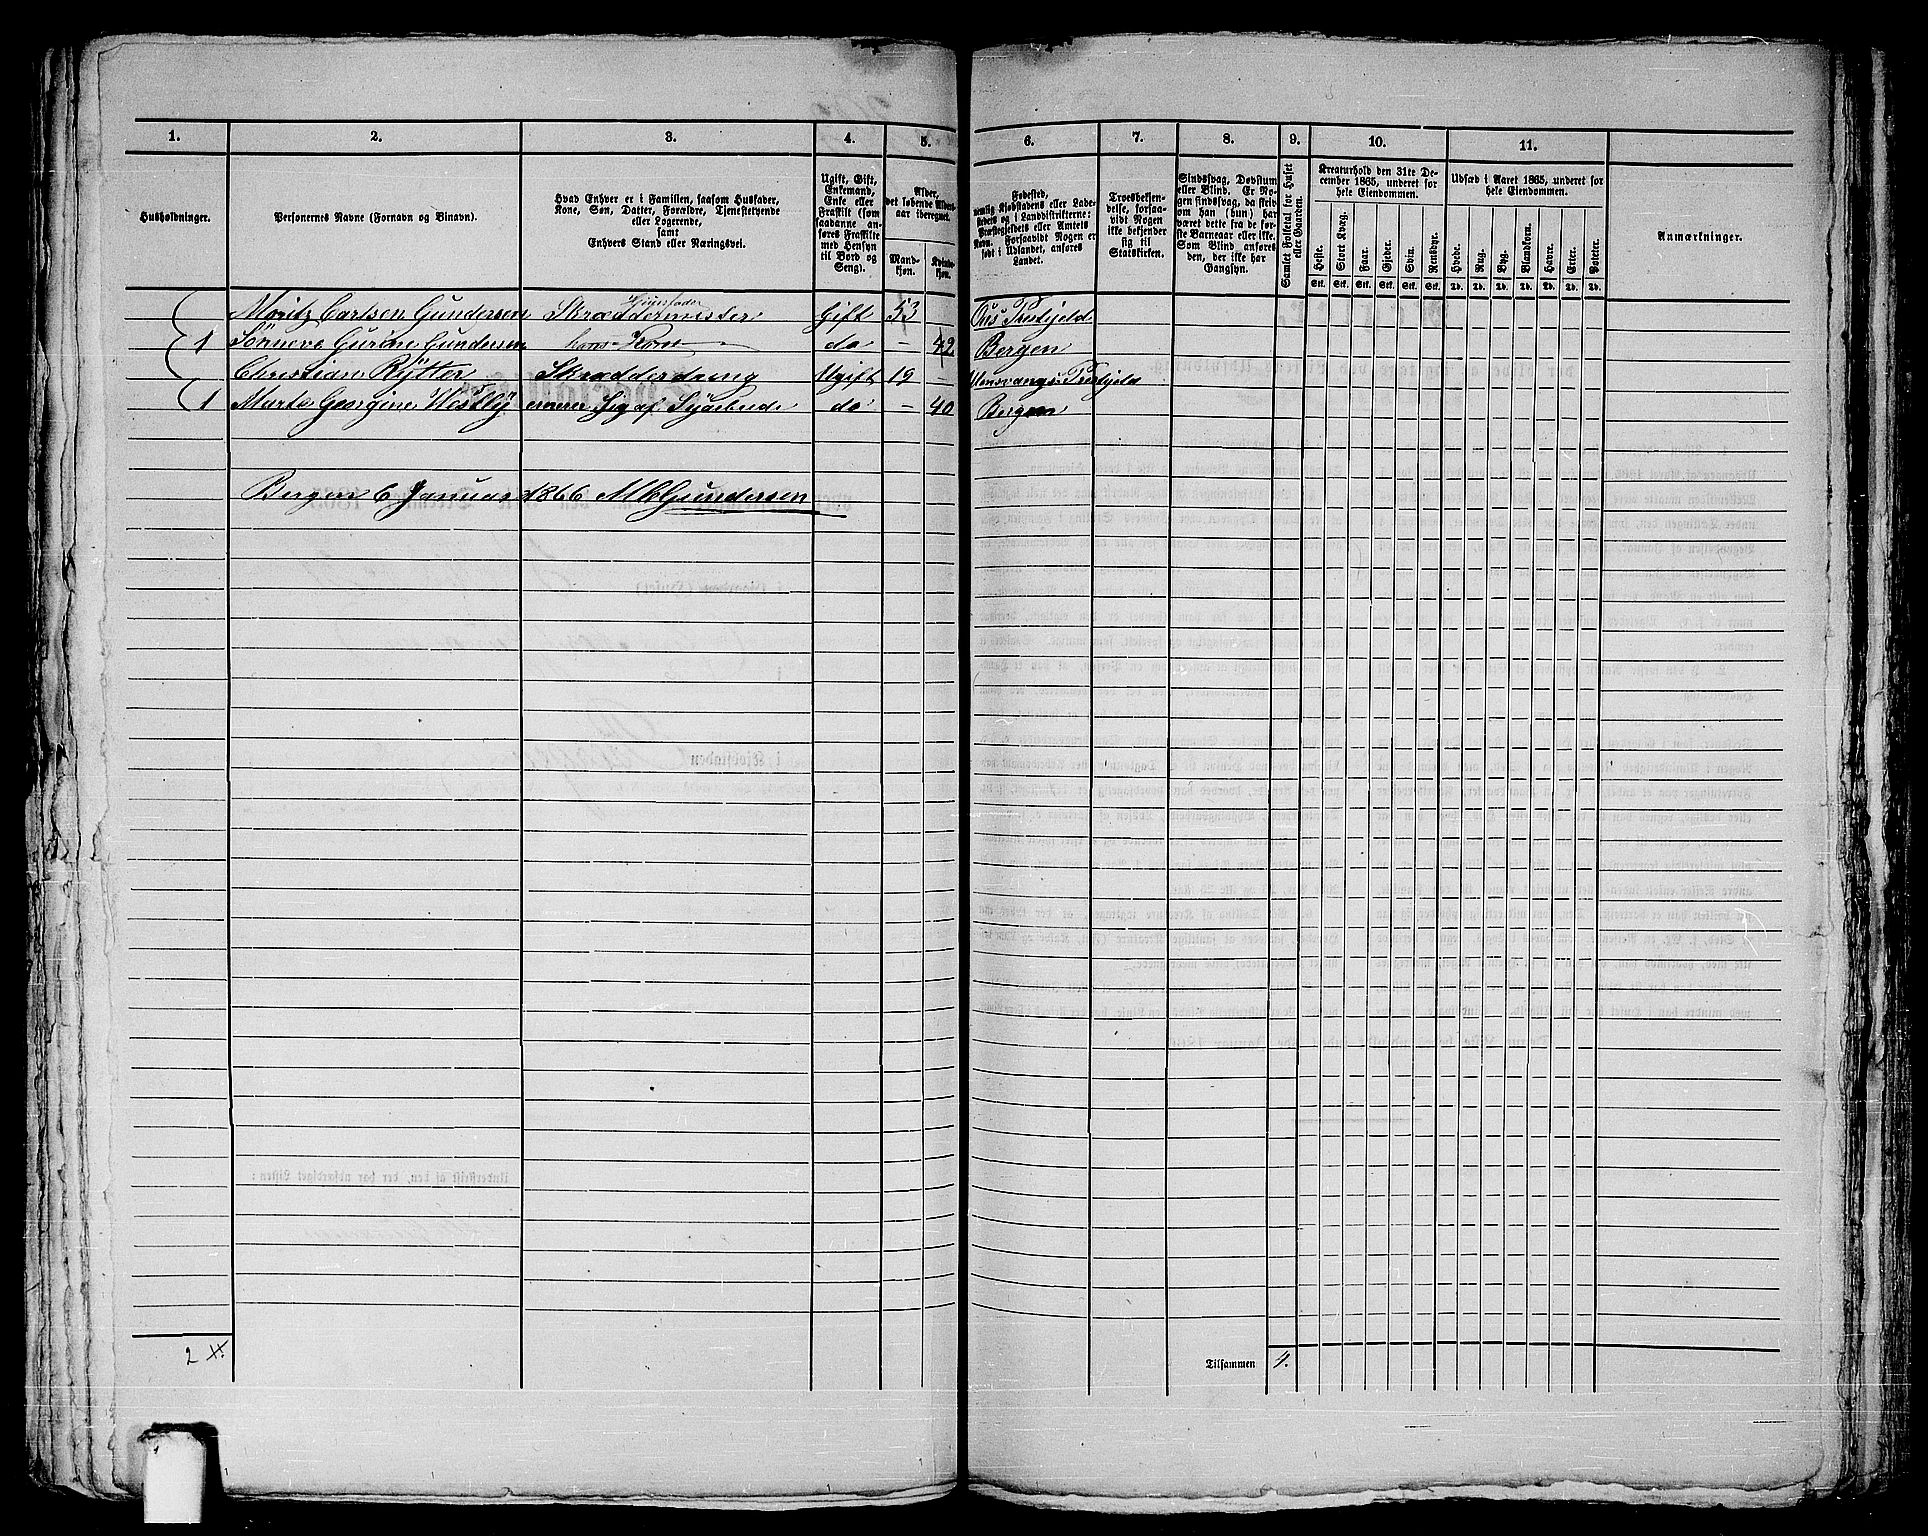 1.
2.
3.
4.
5.
6.
7.
8.
9.
10.
11.
Husholdninger.
Personernes Navne (Fornavn og Binavn).
Hvad Enhver er i Familien, saasom Husfader,
Kone, Søn, Datter, Forældre, Tjenestetyende
eller Logerende,
samt
Enhvers Stand eller Næringsvei.
Ugift, Gift,
Enkemand,
Enke eller
Fraskilt (som
saadanne an-
føres Fraskilte
med Hensyn
til Bord og
Seng).
Alder,
det løbende Alders-
aar iberegnet.
Mand-
kjøn.
Kvinde-
kjøn.
Fødested,
nemlig Kjøbstadens eller Lade-
stedets og i Landdistrikterne:
Præstegjeldets eller Amtets
Navn. Forsaavidt Nogen er
født i Udlandet, anføres
Landet.
Troesbekjen-
delse, forsaa-
vidt Nogen
ikke bekjender
sig til
Statskirken.
Sindssvag, Døvstum
eller Blind. Er No-
gen sindssvag, da skriv
om han (hun) har
været dette fra de før-
ste Barneaar eller ikke.
Som Blind anføres
den, der ikke har
Gangsyn.
Samlet Folketal for Huset
eller Gaarden.
Kreaturhold den 31te De-
cember 1865, underet for
hele Eiendommen.
Heste.
Stort Kvæg.
Faar.
Gjeder.
Svin.
Rensdyr.
Stk. Stk. Stk. Stk. Stk. Stk.
Udsæd i Aaret 1865, underet for
hele Eiendommen.
Hvede.
Rug.
Byg.
Blandkorn.
Havre.
Erter.
Poteter.
Td. Td. Td. Td. Td. Td. Td.
Anmærkninger.
Huusfader
Moritz Carlsen Gundersen Skræddermester Gift 53 Præstgjeld
1 Gurine Gundersen hans Kone do – 42 Bergen
Christian Rÿtter Skrædderdreng Ugift 19 – Præstgjeld
1 Marte Georgine Westlÿ ernærer sig af Syarbeide do – 40 Bergen
Bergen 6 Januar 1866 M C Gundersen
2
Tilsammen 4.